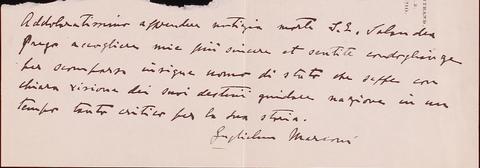 Addoloratissimo apprendere notizia morte S.E. Salandra
Prego accogliere mie più sincere et sentite condoglianze
per scomparsa insigne uomo di stato che seppe con
chiara visione dei suoi destini guidare nazione in un
tempo tanto critico per la sua storia.
Guglielmo Marconi